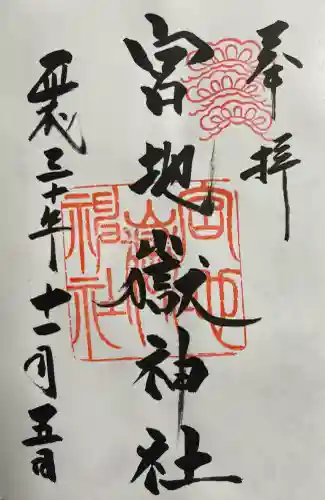 奉拝
宮地嶽神社
平成三十年十一月五日
宮地
嶽
神社